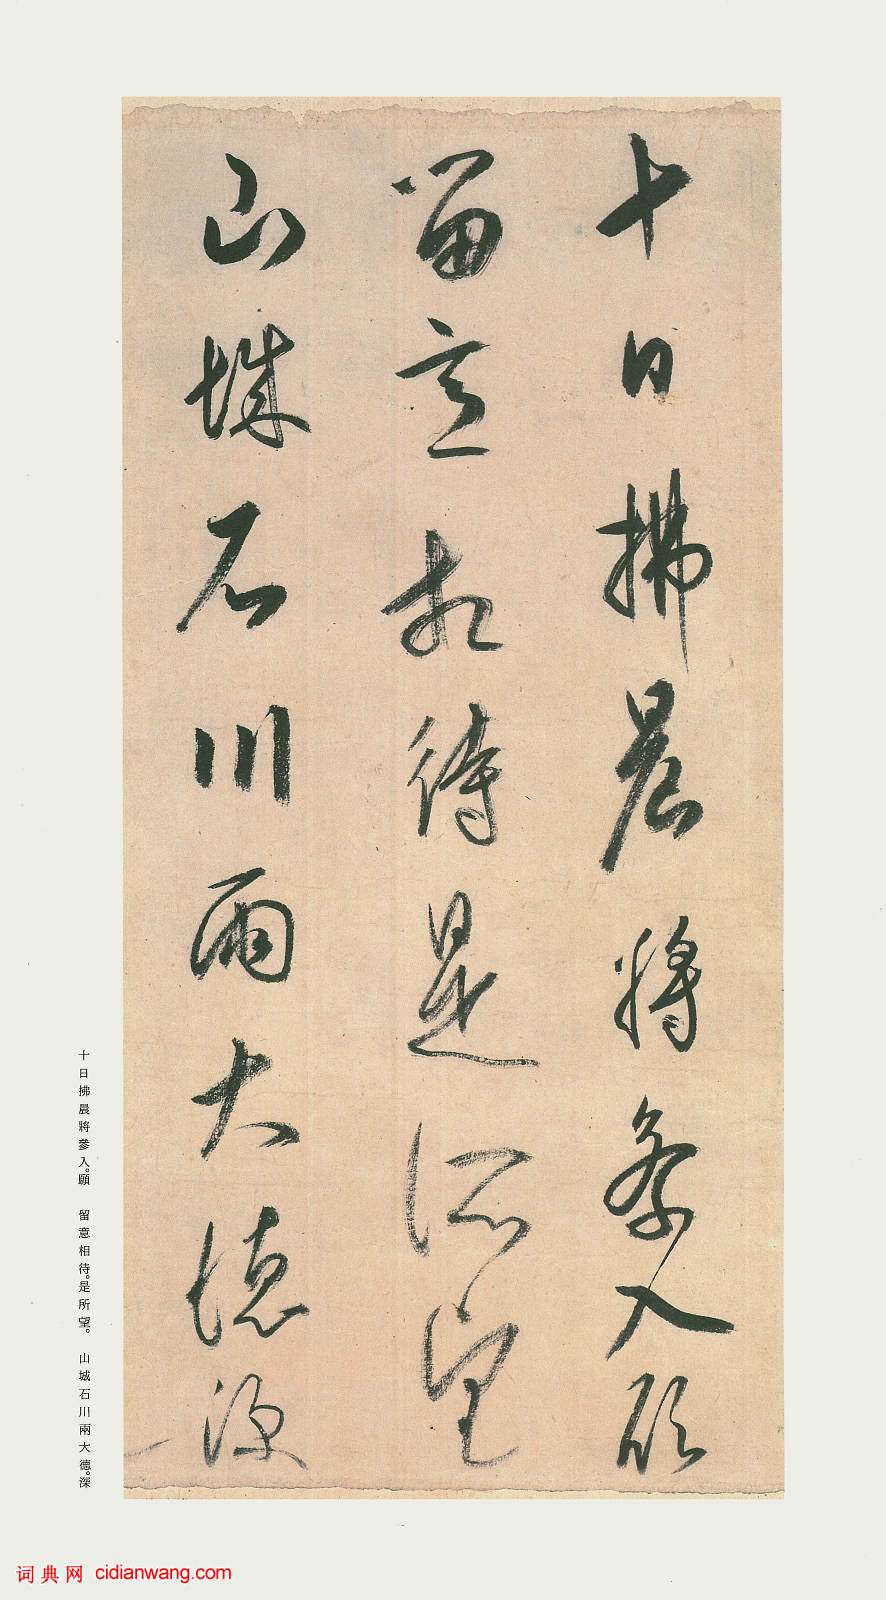 十日拂晨將參入願
留意相待是所望
山城石川兩大德深
十日拂晨將參入。願　留意相待。是所望。　山城石川兩大德。深
词典网 cidianwang.com